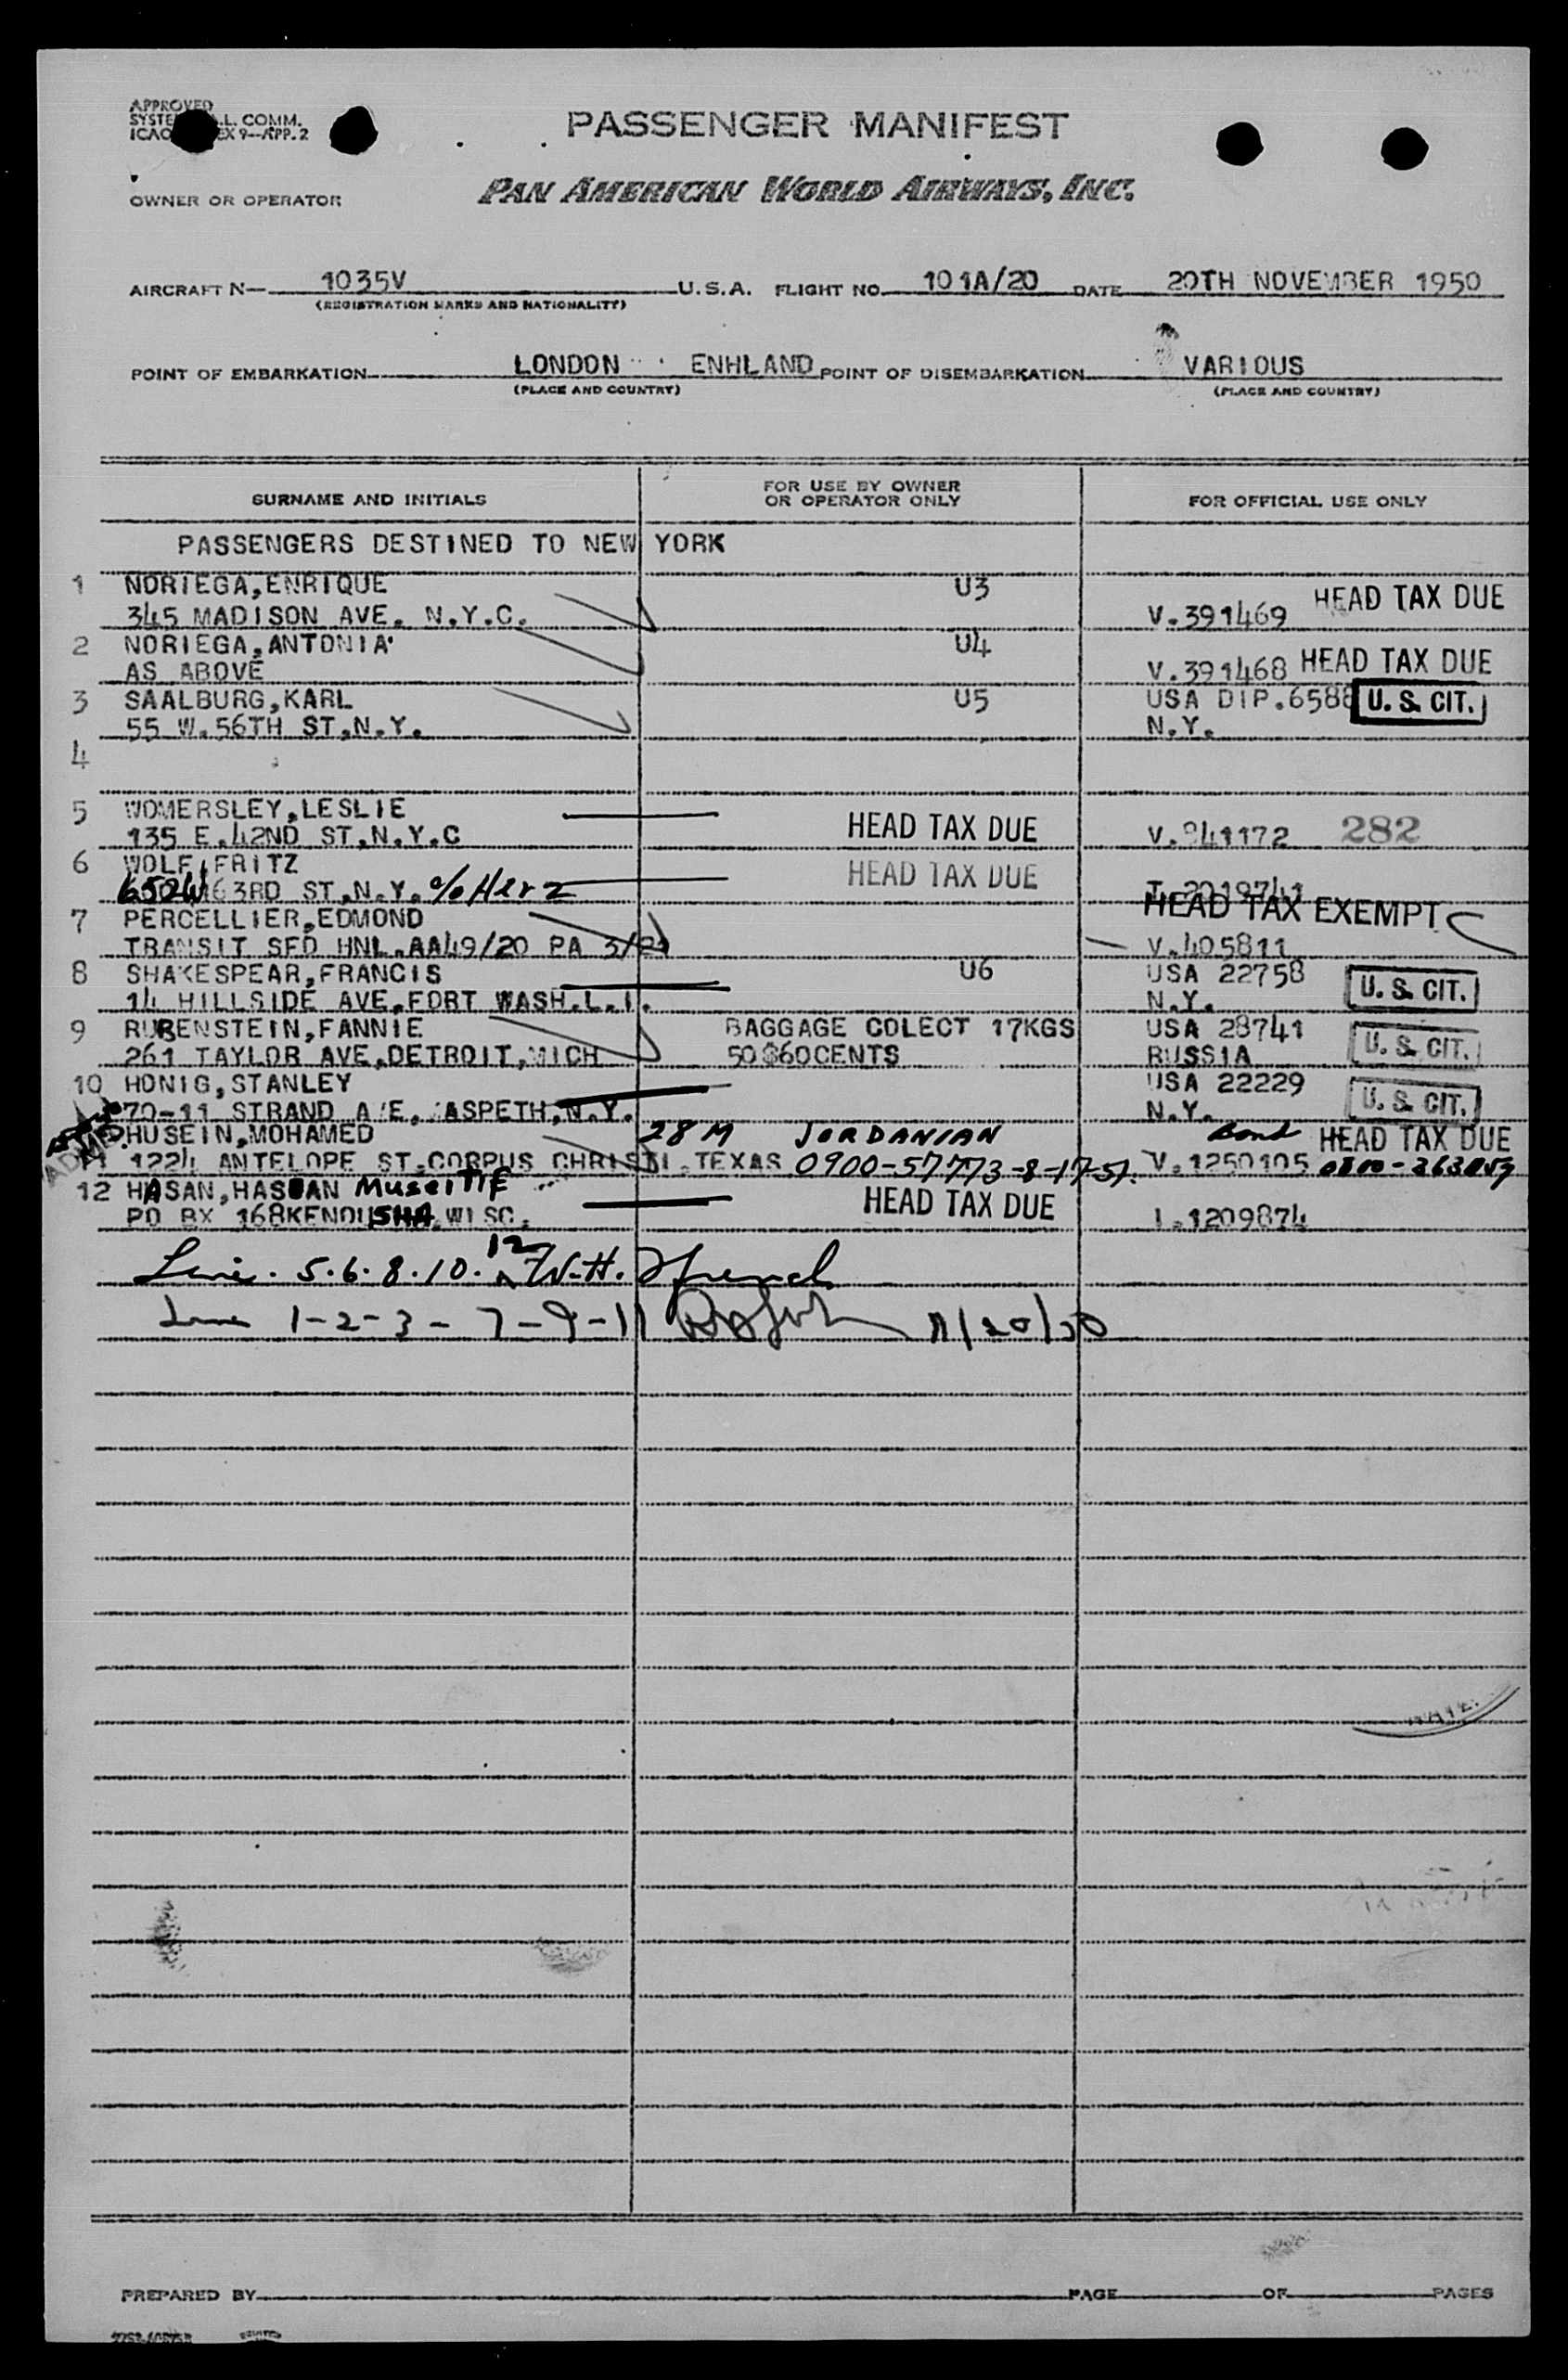 APPROVED
L. COMM.
ICAO EX 9—APP. 2
PASSENGER MANIFEST
OWNER OR OPERATOR PAN AMERICAN WORLD AIRWAYS, INC.
AIRCRAFT N— 1035V U.S.A. FLIGHT NO. 101A/20 DATE 20TH NOVEMBER 1950
(REGISTRATION MARKS AND NATIONALITY)
POINT OF EMBARKATION LONDON ENHLAND POINT OF DISEMBARKATION VARIOUS
(PLACE AND COUNTRY) (PLACE AND COUNTRY)
SURNAME AND INITIALS FOR USE BY OWNER OR OPERATOR ONLY FOR OFFICIAL USE ONLY
PASSENGERS DESTINED TO NEW YORK
1 NORIEGA,ENRIQUE U3 HEAD TAX DUE
345 MADISON AVE. N.Y.C. V.391469
2 NORIEGA,ANTONIA U4
AS ABOVE V.391468 HEAD TAX DUE
3 SAALBURG,KARL U5 USA DIP.6588 U. S. CIT.
55 W.56TH ST,N.Y. N.Y.
4
5 WOMERSLEY,LESLIE
135 E.42ND ST,N.Y.C HEAD TAX DUE 282
6 WOLF,FRITZ HEAD TAX DUE
650W 163RD ST,N.Y. c/o Herz
7 PERCELLIER,EDMOND HEAD TAX EXEMPT
TRANSIT SFO HNL.AA49/20 PA 3/21 V.405811
8 SHAKESPEAR,FRANCIS U6 USA 22758 U. S. CIT.
14 HILLSIDE AVE,FORT WASH.L.I. N.Y.
9 RUBENSTEIN,FANNIE BAGGAGE COLECT 17KGS USA 28741 U. S. CIT.
261 TAYLOR AVE,DETROIT,MICH 50$60CENTS RUSSIA
10 HONIG,STANLEY USA 22229 U. S. CIT.
70-11 STRAND A E. ASPETH,N.Y. N.Y.
HUSEIN,MOHAMED 28 M JORDANIAN Bond HEAD TAX DUE
11 1224 ANTELOPE ST.CORPUS CHRISTI.TEXAS 0900-57773-8-17-51. V.1250105
12 HASAN,HASSAN Museitif HEAD TAX DUE
PO BX 168KENOUSHA,WISC. I.1209874
Line. 5.6.8.10. 12 W.H. French
Line 1-2-3-7-9-11 11/20/50
PREPARED BY PAGE OF PAGES